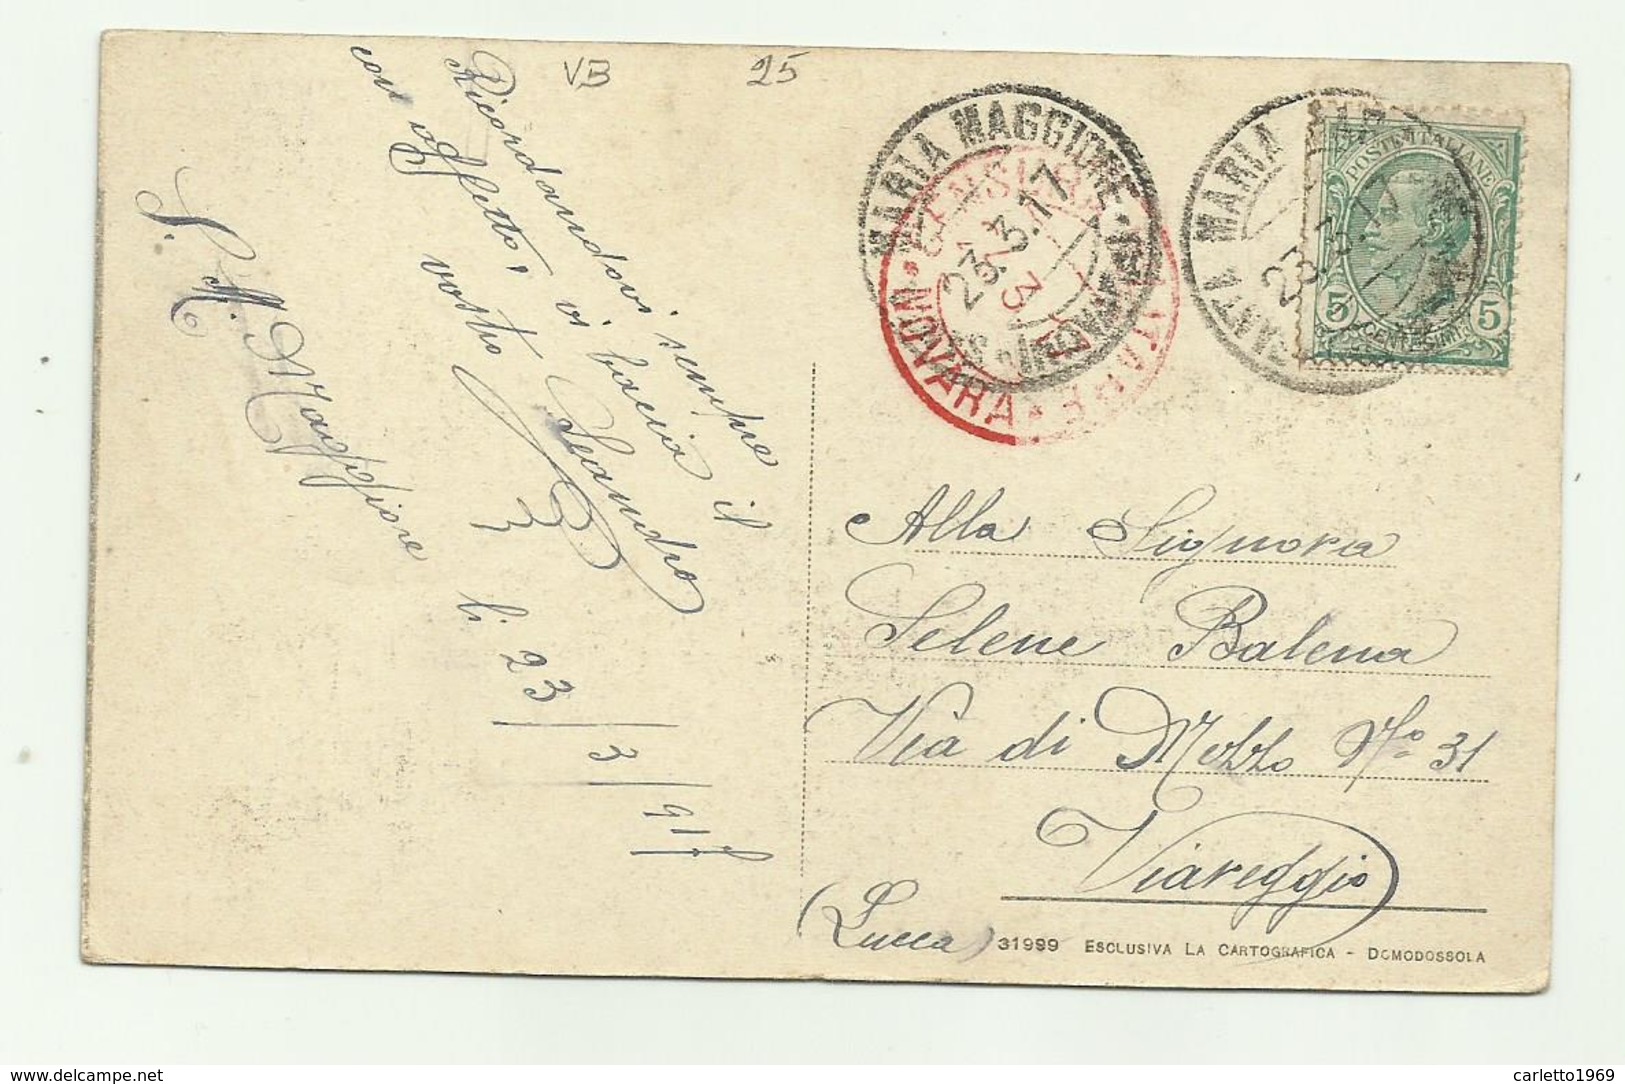 VB
25
Ricordandovi sempre il
con affetto, vi bacia
vostro Leandro
S. M. Maggiore li 23/3/917
MARIA MAGGIORE
23.3.17
NOVARA
CENSURA
NOVARA
SANTA MARIA
23.3.17
POSTE ITALIANE
5 CENTESIMI 5
Alla Signora
Selene Balena
Via di Mezzo No 31
Viareggio
(Lucca)
31999 ESCLUSIVA LA CARTOGRAFICA - DOMODOSSOLA
delcampe.net
carletto1969